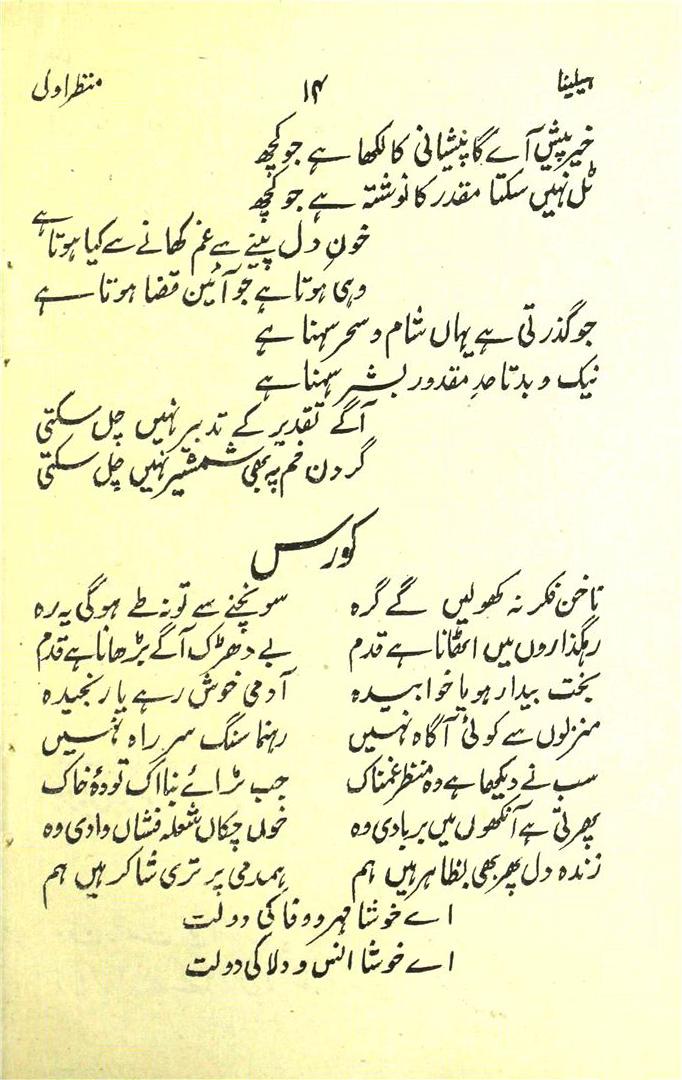 ہیلینا ۱۴ منظر اولی
خیر پیش آے گا پیشانی کا لکھا ہے جو کچھ
ٹل نہیں سکتا مقدر کا نوشتہ ہے جو کچھ
خونِ دل پینے سے غم کھانے سے کیا ہوتا ہے
وہی ہوتا ہے جو آئین قضا ہوتا ہے
جو گذرتی ہے یہاں شام و سحر سہنا ہے
نیک و بد تا حدِ مقدور بشر سہنا ہے
آگے تقدیر کے تدبیر نہیں چل سکتی
گردن خم پہ بھی شمشیر نہیں چل سکتی
کورس
ناخن فکر نہ کھولیں گے گرہ سونچنے سے تو نہ طے ہوگی یہ رہ
رہگذاروں میں اٹھانا ہے قدم بے دھڑک آگے بڑھانا ہے قدم
بخت بیدار ہو یا خوابیدہ آدمی خوش رہے یا رنجیدہ
منزلوں سے کوئی آگاہ نہیں رہنما سنگ سر راہ نہیں
سب نے دیکھا ہے وہ منظر غمناک جب ٹرائے بنا اک تودۂ خاک
پھرتی ہے آنکھوں میں بربادی وہ خوں چکاں شعلہ فشاں وادی وہ
زندہ دل پھر بھی بظاہر ہیں ہم ہمدمی پر تری شاکر ہیں ہم
اے خوشا مہر و وفا کی دولت
اے خوشا انس و ولا کی دولت